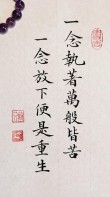 一念執著萬般皆苦
一念放下便是重生